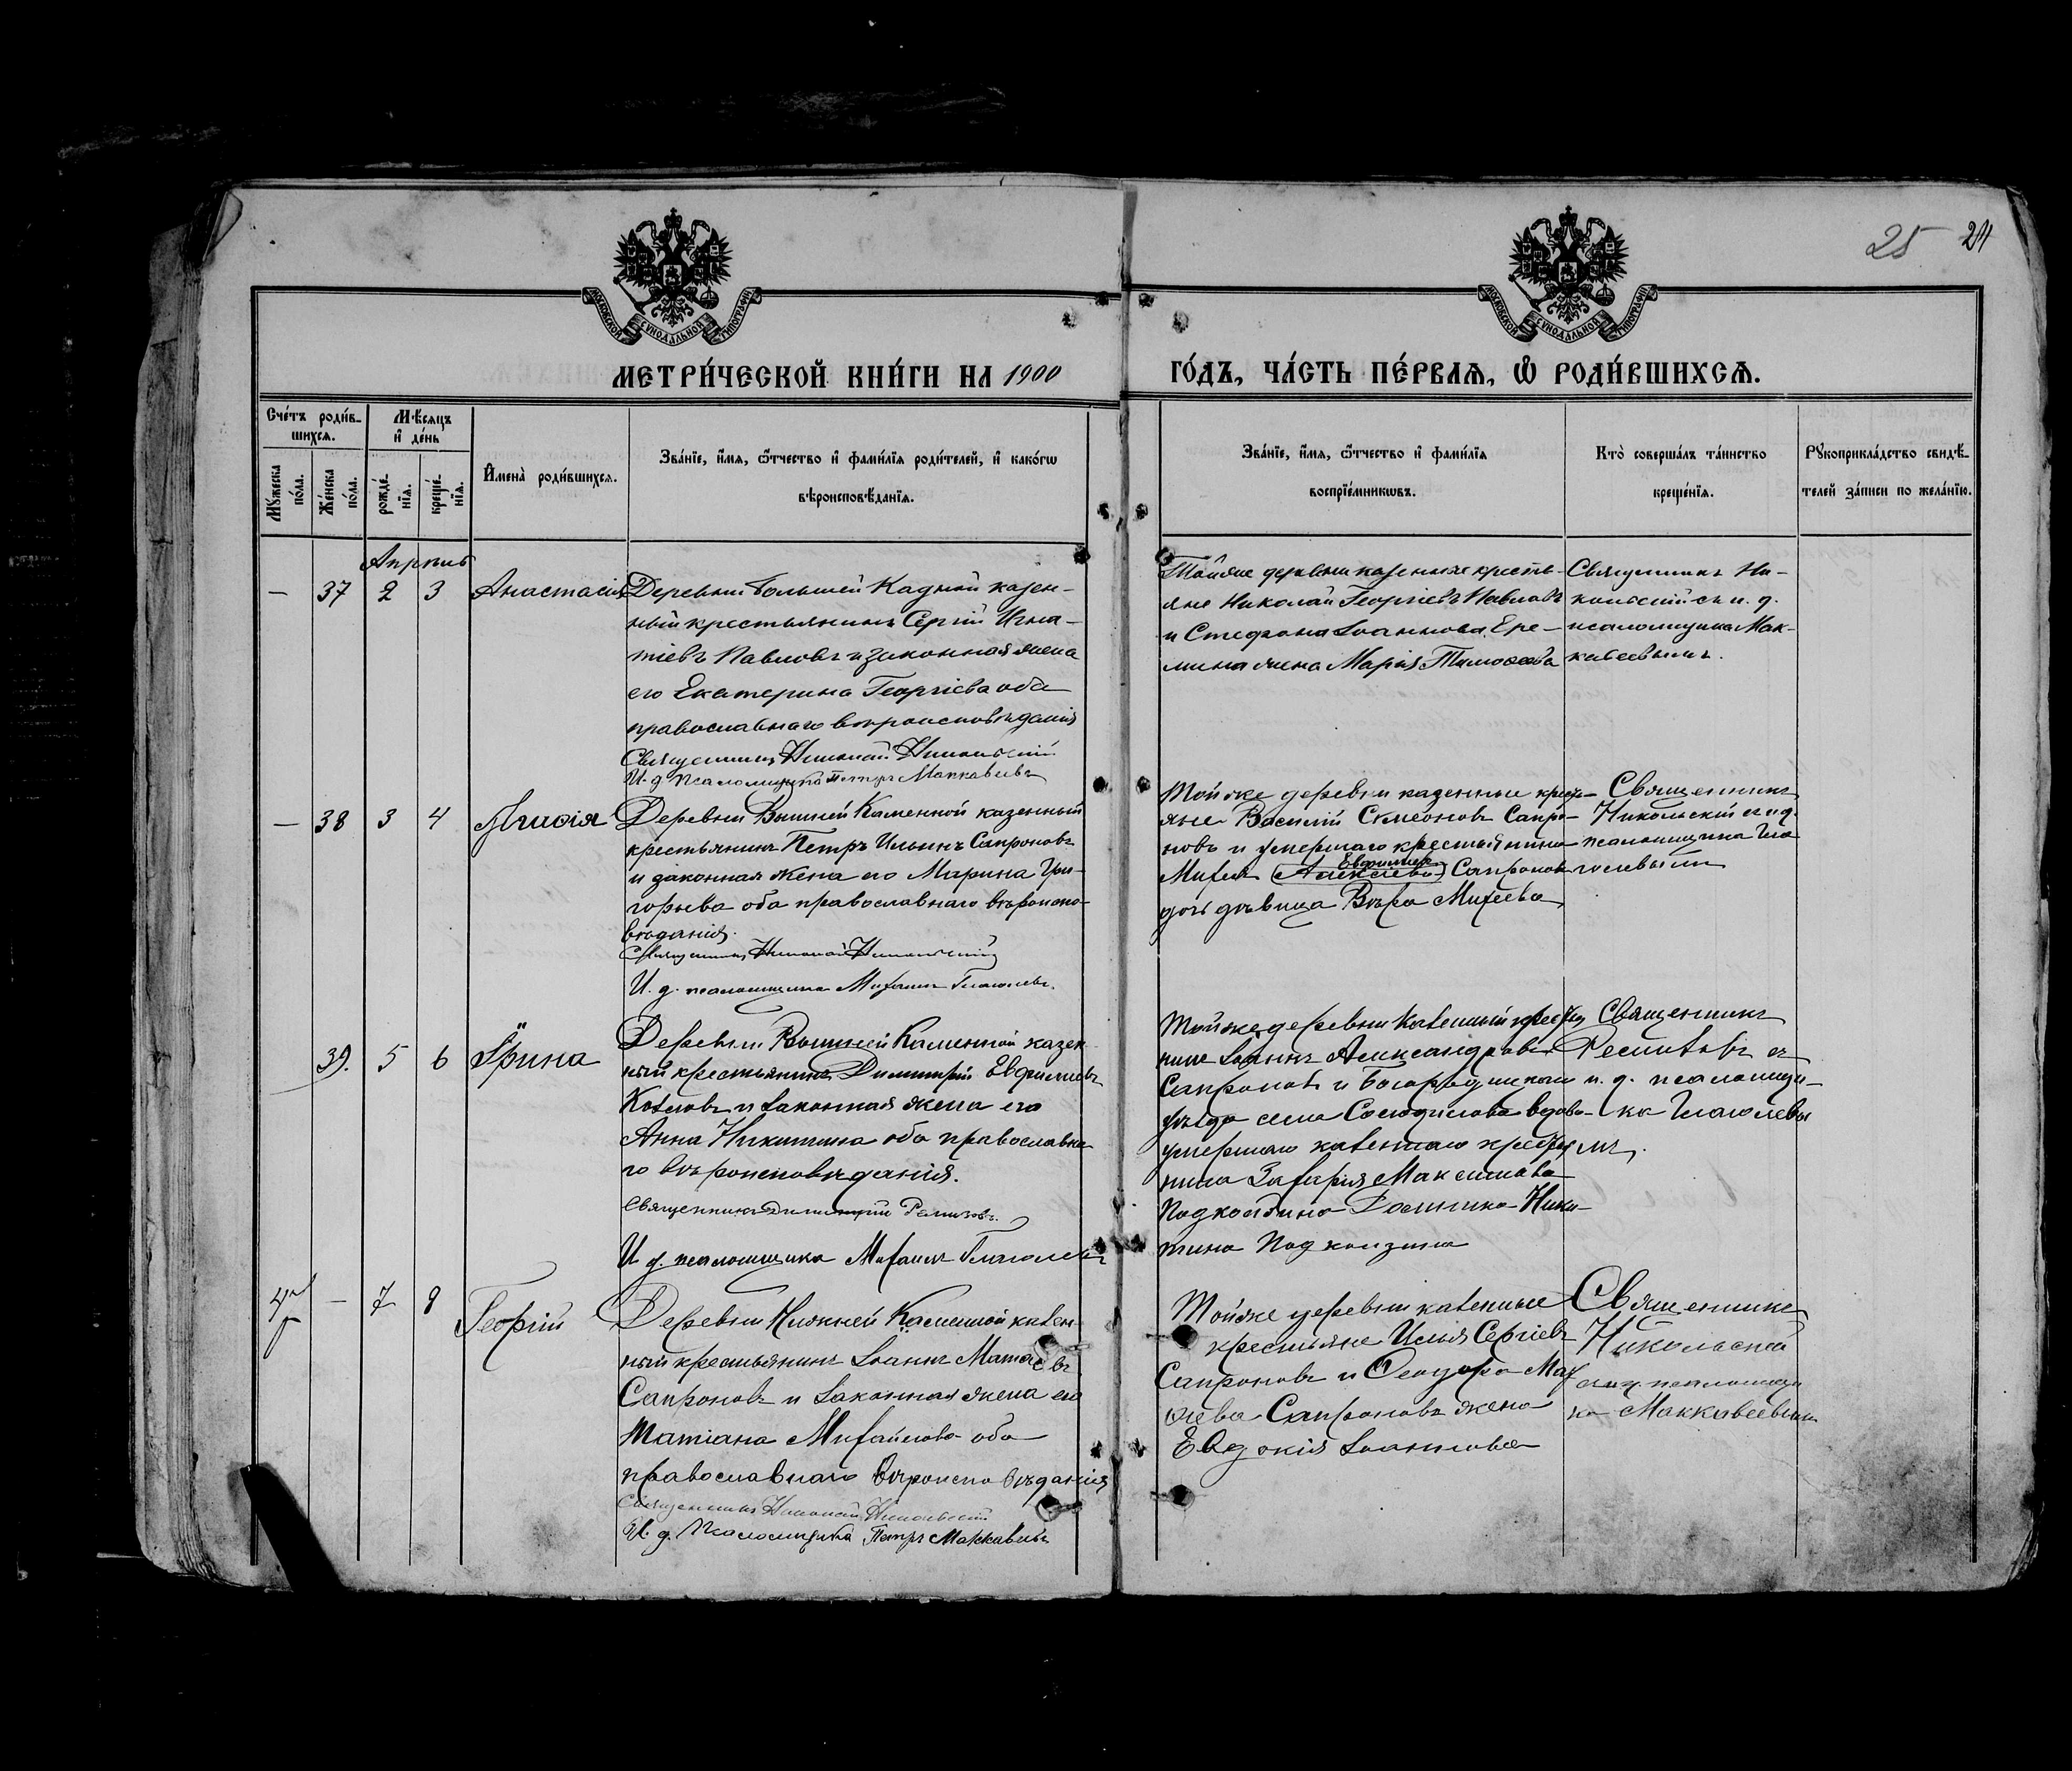 25 24
МОСКОВСКОЙ СѴНОДАЛЬНОЙ ТИПОГРАФІИ
МОСКОВСКОЙ СѴНОДАЛЬНОЙ ТИПОГРАФІИ
МЕТРИ́ЧЕСКОЙ КНИ́ГИ НА 1900
ГО́ДЪ, ЧА́СТЬ ПЕ́РВАѦ, Ѽ РОДИ́ВШИХСѦ.
Сче́тъ роди́в-
шихсѧ.
Мѣ́сяцъ
и҆ де́нь
Мꙋ́жеска
по́ла.
Же́нска
по́ла.
рожде́-
нїѧ.
креще́-
нїѧ.
И҆мена̀ роди́вшихсѧ.
Зва́нїе, и҆́мѧ, ѻ҆́тчество и҆ фами́лїѧ роди́телей, и҆ како́гѡ
вѣроисповѣ́данїѧ.
Зва́нїе, и҆́мѧ, ѻ҆́тчество и҆ фами́лїѧ
воспрїе́мникѡвъ.
Кто̀ соверша́лъ та́инство
креще́нїѧ.
Рꙋкоприкла́дство свидѣ́-
телей за́писи по жела́нїю.
Апрѣль
— 37 2 3 Анастасія
Деревни Большей Кадной казен-
ный крестьянинъ Сергій Игна-
тіевъ Павловъ и законная жена
его Екатерина Георгіева оба
православнаго вѣроисповѣданія
Священникъ Николай Никольскій
И. д. псаломщика Петръ Маккавеевъ
Той же деревни казенные кресть-
яне Николай Георгіевъ Павловъ
и Стефана Іоаннова Ере-
мина жена Марія Тимоѳеева
Священникъ Ни-
кольскій съ и. д.
псаломщика Мак-
кавеевымъ.
— 38 3 4
Деревни Вышней Каменной казенный
крестьянинъ Петръ Ильинъ Сапроновъ
и законная жена его Марина Гри-
горьева оба православнаго вѣроиспо-
вѣданія.
Священникъ Николай Никольскій
И. д. псаломщика Михаилъ Глаголевъ.
Той же деревни казенные кресть-
яне Василій Симеоновъ Сапро-
новъ и умершаго крестьянина
Евфиміева
Михея (Алексѣева) Сапронова
дочь дѣвица Вѣра Михеева
Священникъ
Никольскій съ и. д.
псаломщика Гла-
голевымъ
39. 5 6 Ірина
Деревни Вышней Каменной казен-
ный крестьянинъ Димитрій Евфиміевъ
Козловъ и законная жена его
Анна Никитина оба православна-
го вѣроисповѣданія.
Священникъ Димитрій Ремизовъ.
И. д. псаломщика Михаилъ Глаголевъ
Той же деревни казенный кресть-
нинъ Іоаннъ Александровъ
Сапроновъ и Богородицкаго
уѣзда села вдова
умершаго казеннаго крестья
нина Захарія Максимова
Ники-
тина
Священникъ
Ремизовъ съ
и. д. псаломщи-
ка Глаголевы
мъ.
— 7 8 Георгій
Деревни Нижней Каменной казен-
ный крестьянинъ Іоаннъ Матѳеевъ
Сапроновъ и законная жена его
Татіана Михайлова оба
православнаго вѣроисповѣданія
Священникъ Николай Никольскій
И. д. Псаломщика Петръ Маккавеевъ
Той же деревни казенные
крестьяне Илья Сергіевъ
Сапроновъ и Ѳеодора
Сапронова жена
Евдокія Іоаннова
Священникъ
Никольскій
съ и. д. псаломщи
ка Маккавеевымъ